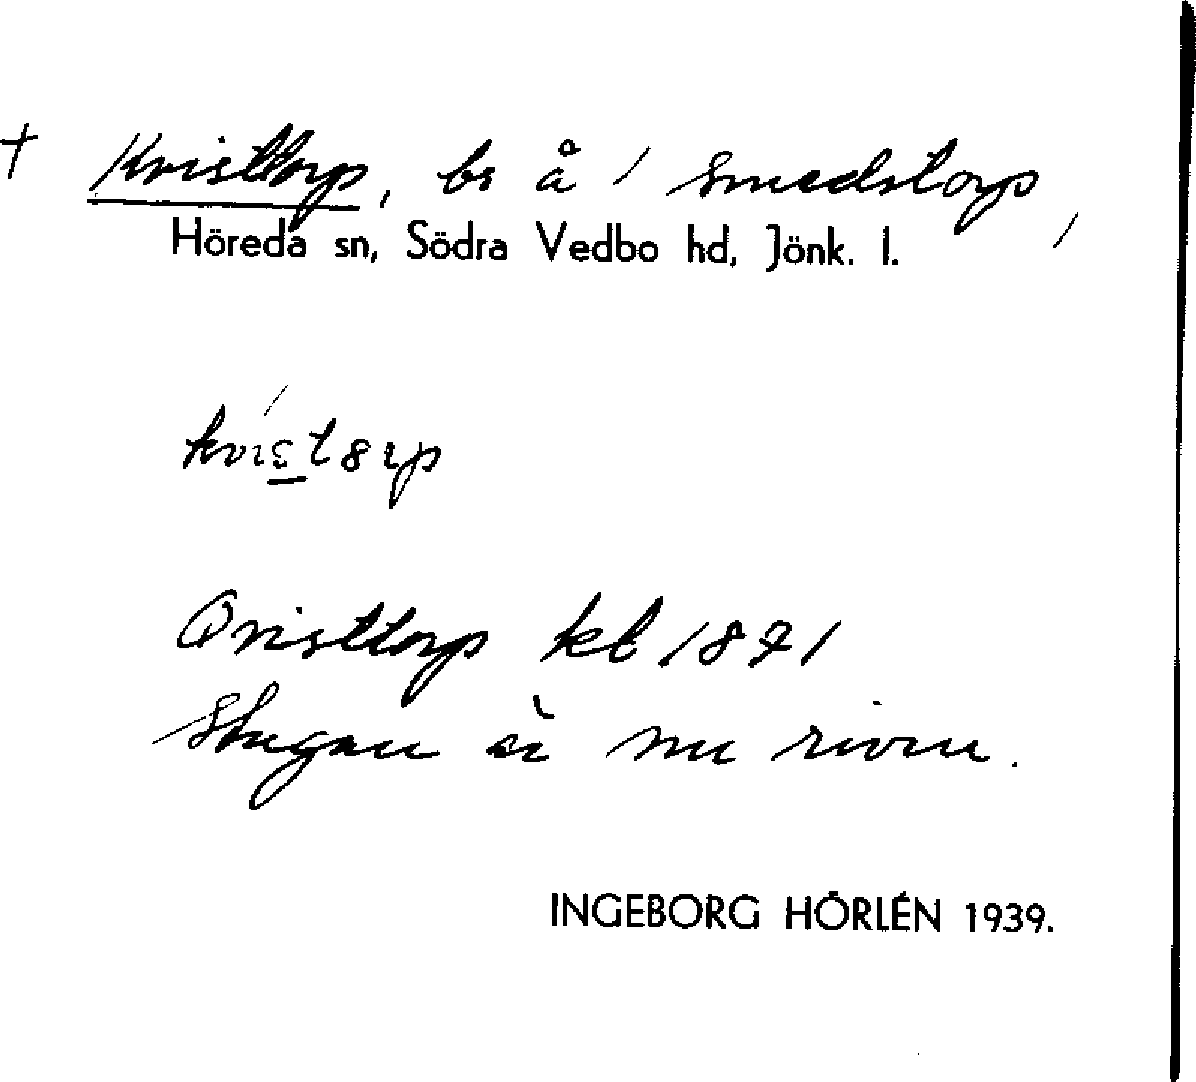 † Kvisttorp, bs å 1 Smedstorp,
Höreda sn, Södra Vedbo hd, Jönk. l.
Qvisttorp kt 1871
Stugan är nu riven.
INGEBORG HÖRLÉN 1939.